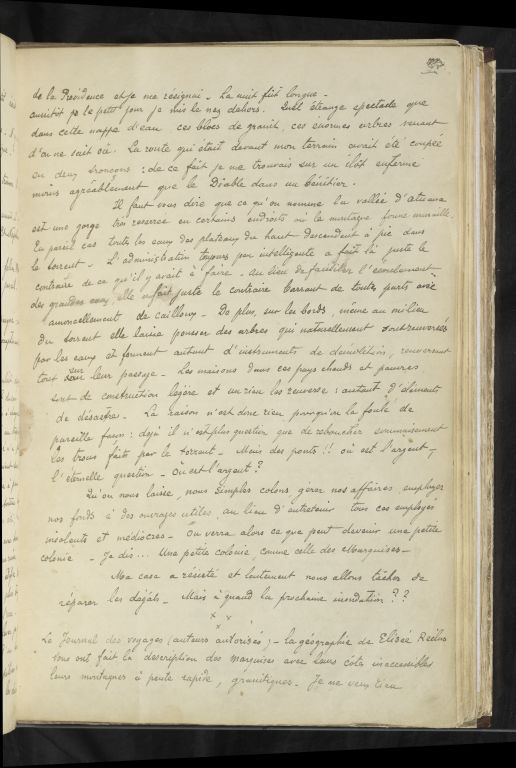 de la Providence et je me résignai _ La nuit fut longue _
aussitôt po le petit jour je mis le nez dehors. Quel étrange spectacle que
dans cette nappe d'eau, ces blocs de granit, ces énormes arbres venant
d'on ne sait où. La route qui était devant mon terrain avait été coupée
en deux tronçons : de ce fait je me trouvais sur un îlot enfermé
moins agréablement que le Diable dans un bénitier.
Il faut vous dire que ce qu'on nomme la vallée d'Atuana
est une gorge très resserré en certains endroits où la montagne forme muraille.
En pareil cas toute les eaux des plateaux du haut descendent à pic dans
le torrent _ L'administration toujours peu intelligente a fait là juste le
contraire de ce qu'il y avait à faire _ Au lieu de faciliter l'écoulement
des grandes eaux, elle a fait juste le contraire barrant de toutes parts avec
amoncellement de cailloux _ De plus, sur les bords, même au milieu
du torrent elle laisse pousser des arbres qui naturellement sont renversés
par les eaux et forment autant d'instruments de démolition, renversant
tout sur leur passage _ Les maisons dans ces pays chauds et pauvres
sont de construction légère et un rien les renverse : autant d'éléments
de désastre _ La raison n'est donc rien pour qu'on la foule de
pareille façon : déjà il n'est plus question que de reboucher sommairement
les trous faits par le torrent _ Mais des ponts !! où est l'argent,
l'éternelle question _ Où est l'argent ?
Qu'on nous laisse, nous simples colons, gérer nos affaires, employer
nos fonds à des ouvrages utiles, au lieu d'entretenir tous ces employés
insolents et médiocres _ On verra alors ce que peut devenir une petite
colonie _ Je dis ... Une petite colonie comme celle des Marquises _
Ma case a résisté et lentement nous allons tâcher de
réparer les dégâts _ Mais à quand la prochaine inondation ??
x x
x
Le Journal des voyages (auteurs autorisés) _ la géographie de Elisée Reclus
nous ont fait la description des Marquises avec leurs côtes inaccessibles
leurs montagnes à pente rapide, granitiques _ Je ne veux rien